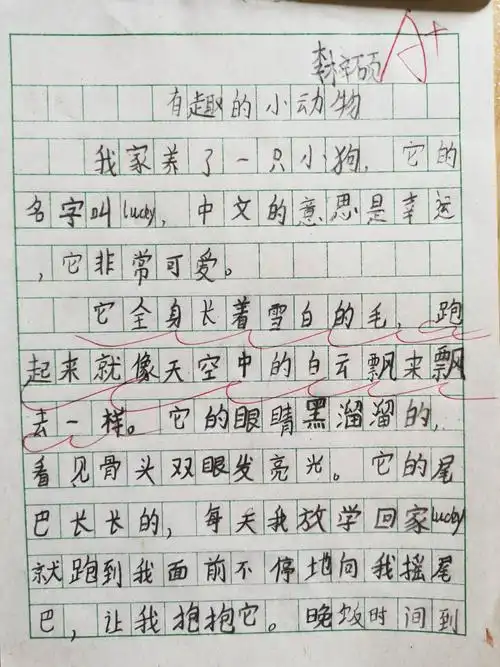 A+
李宇硕
有趣的小动物
我家养了一只小狗，它的
名字叫lucky，中文的意思是幸运
，它非常可爱。
它全身长着雪白的毛，跑
起来就像天空中的白云飘来飘
去一样。它的眼睛黑溜溜的，
看见骨头双眼发亮光。它的尾
巴长长的，每天我放学回家lucky
就跑到我面前不停地向我摇尾
巴，让我抱抱它。晚饭时间到